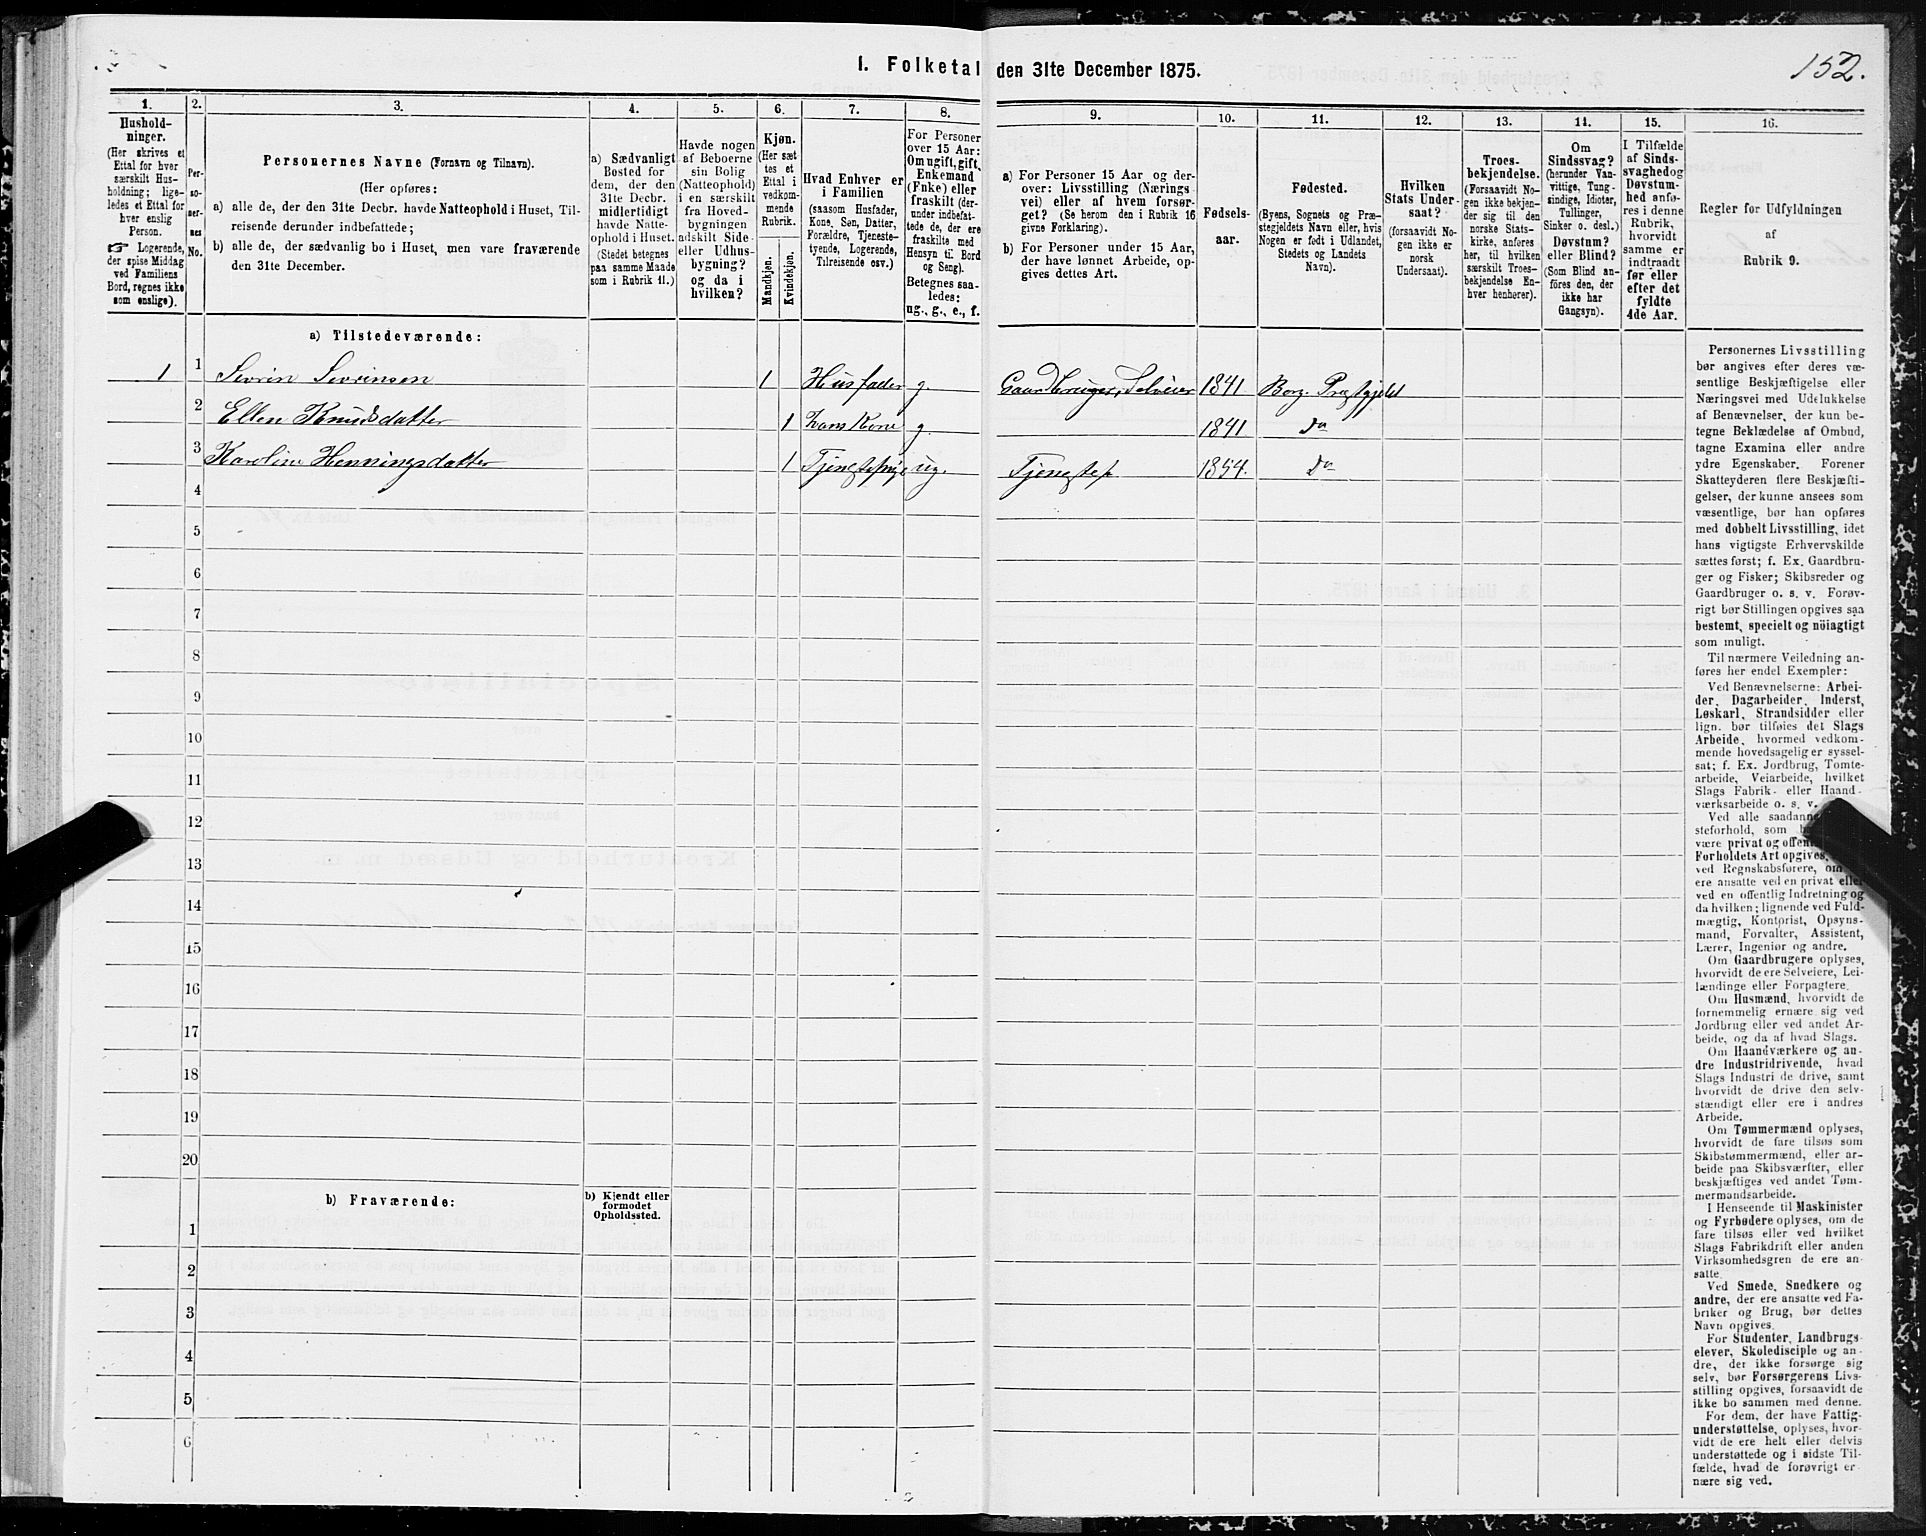 1. Folketal den 31te December 1875.
152.
1.
2.
3.
4.
5.
6.
7.
8.
9.
10.
11.
12.
13.
14.
15.
16.
Hushold-
ninger.
(Her skrives et
Ettal for hver
særskilt Hus-
holdning; lige-
ledes et Ettal for
hver enslig
Person.
☞ Logerende,
der spise Middag
ved Familiens
Bord, regnes ikke
som enslige).
Per-
so-
ner-
nes
No.
Personernes Navne (Fornavn og Tilnavn).
(Her opføres:
a) alle de, der den 31te Decbr. havde Natteophold i Huset, Til-
reisende derunder indbefattede;
b) alle de, der sædvanlig bo i Huset, men vare fraværende
den 31te December.
a) Sædvanligt
Bosted for
dem, der den
31te Decbr.
midlertidigt
havde Natte-
ophold i Huset.
(Stedet betegnes
paa samme Maade
som i Rubrik 11.)
Havde nogen
af Beboerne
sin Bolig
(Natteophold)
i en særskilt
fra Hoved-
bygningen
adskilt Side-
eller Udhus-
bygning?
og da i
hvilken?
Kjøn.
(Her sæt
tes et
Ettal i
vedkom-
mende
Rubrik.
Mandkjøn.
Kvindekjøn.
Hvad Enhver er
i Familien
(saasom Husfader,
Kone, Søn, Datter,
Forældre, Tjeneste-
tyende, Logerende,
Tilreisende osv.)
For Personer
over 15 Aar:
Om ugift, gift,
Enkemand
(Enke) eller
fraskilt (der-
under indbefat-
tede de, der ere
fraskilte med
Hensyn til Bord
og Seng).
Betegnes saa-
ledes:
ug., g., e., f.
a) For Personer 15 Aar og der-
over: Livsstilling (Nærings-
vei) eller af hvem forsør-
get? (Se herom den i Rubrik 16
givne Forklaring).
b) For Personer under 15 Aar,
der have lønnet Arbeide, op-
gives dettes Art.
Fødsels-
aar.
Fødested.
(Byens, Sognets og Præ-
stegjeldets Navn eller, hvis
Nogen er født i Udlandet,
Stedets og Landets
Navn).
Hvilken
Stats Under-
saat?
(forsaavidt No-
gen ikke er
norsk
Undersaat).
Troes-
bekjendelse.
(Forsaavidt No-
gen ikke bekjen-
der sig til den
norske Stats-
kirke, anføres
her, til hvilken
særskilt Troes-
bekjendelse En-
hver henhører).
Om
Sindssvag?
(herunder Van-
vittige, Tung-
sindige, Idioter,
Tullinger,
Sinker o. desl.)
Døvstum?
eller Blind?
(Som Blind an-
føres den, der
ikke har
Gangsyn).
I Tilfælde
af Sinds-
svaghed og
Døvstum-
hed anfø-
res i denne
Rubrik,
hvorvidt
samme er
indtraadt
før eller
efter det
fyldte
4de Aar.
Regler for Udfyldningen
af
Rubrik 9.
a) Tilstedeværende:
1 1 Sevrin Sevrinsen 1 Husfader g. Gaardbruger, Selveier 1841 Borg. Præstgjeld
2 Ellen Knudsdatter 1 hans Kone g. 1841 Do
3 Karoline Henningsdatter 1 Tjenstepige ug. Tjenstep. 1854. Do
4
5
6
7
8
9
10
11
12
13
14
15
16
17
18
19
20
b) Fraværende:
b) Kjendt eller
formodet
Opholdssted.
1
2
3
4
5
6
Personernes Livsstilling
bør angives efter deres væ-
sentlige Beskjæftigelse eller
Næringsvei med Udelukkelse
af Benævnelser, der kun be-
tegne Beklædelse af Ombud,
tagne Examina eller andre
ydre Egenskaber. Forener
Skatteyderen flere Beskjæfti-
gelser, der kunne ansees som
væsentlige, bør han opføres
med dobbelt Livsstilling, idet
hans vigtigste Erhvervskilde
sættes først; f. Ex. Gaardbru-
ger og Fisker; Skibsreder og
Gaardbruger o. s. v. Forøv-
rigt bør Stillingen opgives saa
bestemt, specielt og nöiagtigt
som muligt.
Til nærmere Veiledning an-
føres her endel Exempler:
Ved Benævnelserne: Arbei-
der, Dagarbeider, Inderst,
Løskarl, Strandsidder eller
lign. bør tilføies det Slags
Arbeide, hvormed vedkom-
mende hovedsagelig er syssel-
sat; f. Ex. Jordbrug, Tomte-
arbeide, Veiarbeide, hvilket
Slags Fabrik- eller Haand-
værksarbeide o. s. v.
Ved alle saadanne
steforhold, som
være privat og offen
Forholdets Art opgives,
ved Regnskabsførere, om
ere ansatte ved en privat eller
ved en offentlig Indretning og
da hvilken; lignende ved Fuld-
mægtig, Kontorist, Opsyns-
mand, Forvalter, Assistent,
Lærer, Ingeniør og andre.
Om Gaardbrugere oplyses,
hvorvidt de ere Selveiere, Lei-
lændinge eller Forpagtere.
Om Husmænd, hvorvidt de
fornemmelig ernære sig ved
Jordbrug eller ved andet Ar-
beide, og da af hvad Slags.
Om Haandværkere og an-
dre Industridrivende, hvad
Slags Industri de drive, samt
hvorvidt de drive den selv-
stændigt eller ere i andres
Arbeide.
Om Tømmermænd oplyses,
hvorvidt de fare tilsøs som
Skibstømmermænd, eller ar-
beide paa Skibsværfter, eller
beskjæftiges ved andet Tøm-
mermandsarbeide.
I Henseende til Maskinister
og Fyrbødere oplyses, om de
fare tilsøs eller ved hvilket
Slags Fabrikdrift eller anden
Virksomhedsgren de ere an-
satte.
Ved Smede, Snedkere og
andre, der ere ansatte ved Fa-
briker og Brug, bør dettes
Navn opgives.
For Studenter, Landbrugs-
elever, Skoledisciple og an-
dre, der ikke forsørge sig
selv, bør Forsørgerens Livs-
stilling opgives, forsaavidt de
ikke bo sammen med denne.
For dem, der have Fattig-
understøttelse, oplyses, hvor-
vidt de ere helt eller delvis
understøttede og i sidste Til-
fælde, hvad de forøvrigt er-
nære sig ved.